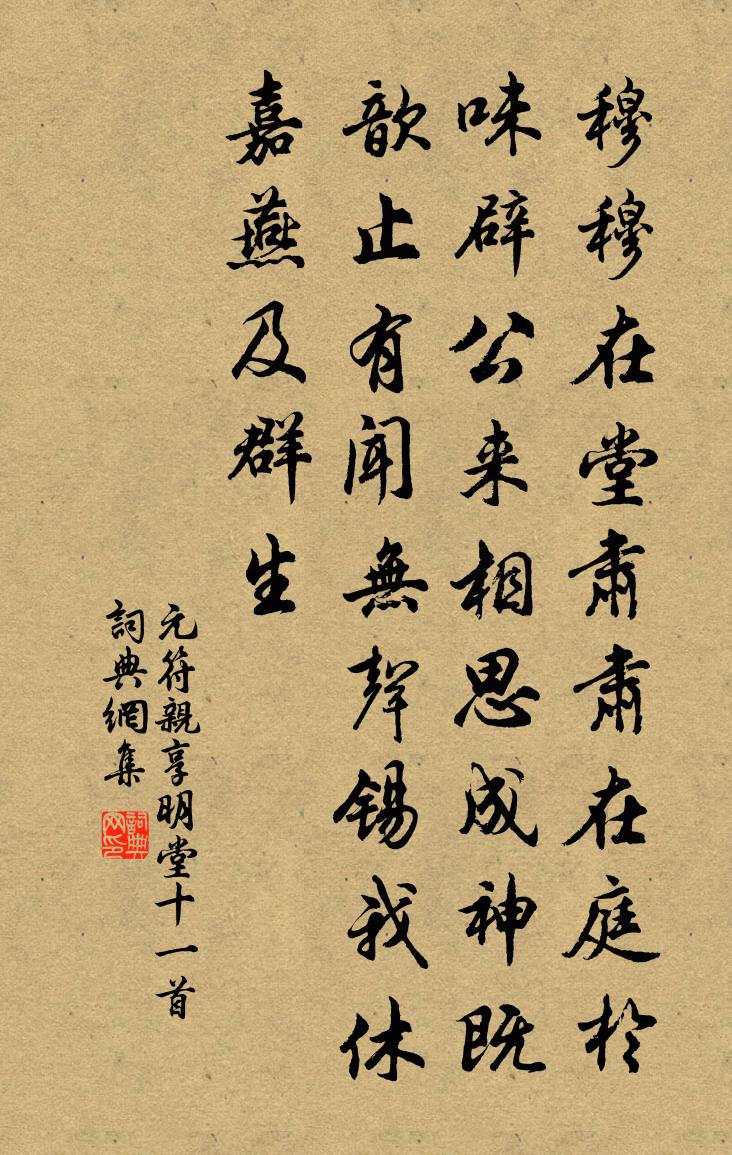 穆穆在堂肅肅在庭於
味辟公来相思成神既
歆止有聞無聲錫我休
嘉燕及群生
元符親享明堂十一首
詞典網集
詞典網印